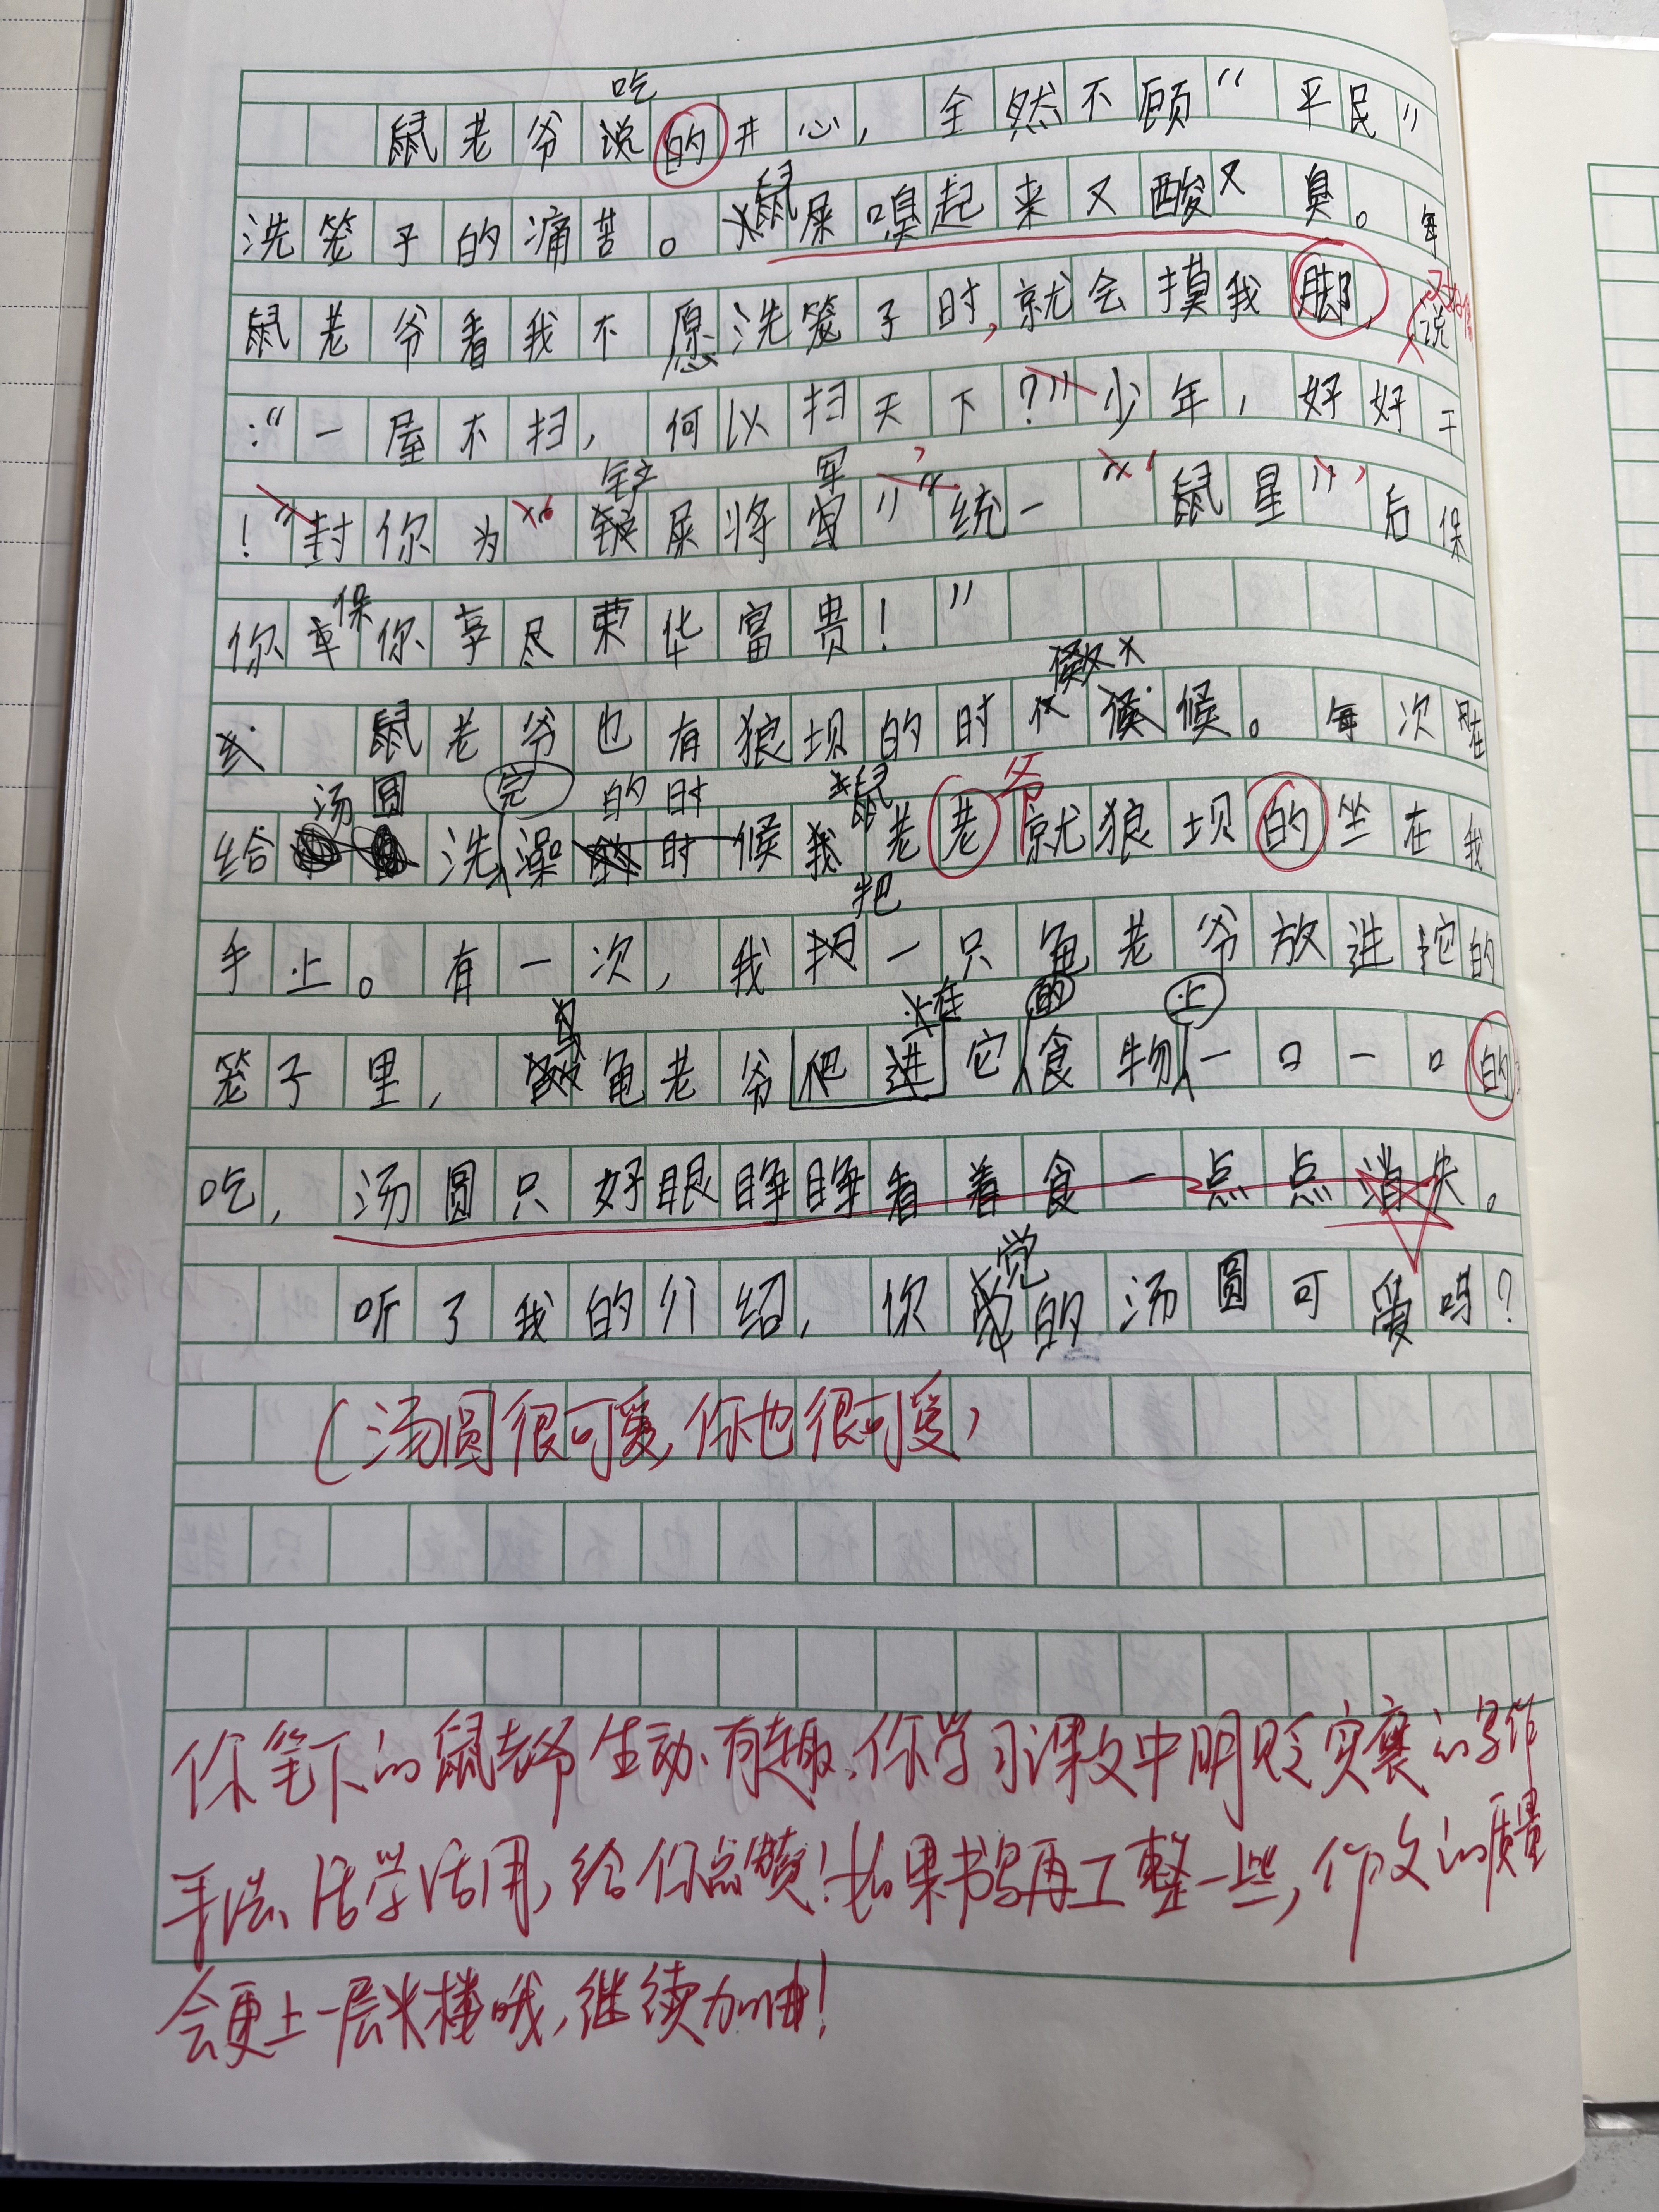 吃
鼠老爷说的开心，全然不顾“平民”
洗笼子的痛苦。鼠屎嗅起来又酸又臭。每
鼠老爷看我不愿洗笼子时，就会摸我脚，说
：“一屋不扫，何以扫天下？”少年，好好干
铲 军
！”封你为“铲屎将军”“统一“鼠星”后保
保
你享你享尽荣华富贵！”
鼠老爷也有狼坝的时候。每次在
汤圆 完 的时 鼠 爷
给洗澡的时候我老老就狼坝的坐在我
把
手上。有一次，我把一只龟老爷放进它的
在 的 上
笼子里，龟老爷爬进它食物一口一口的
吃，汤圆只好眼睁睁看着食一点点消失。
觉
听了我的介绍，你的汤圆可爱吗？
（汤圆很可爱，你也很可爱）
你笔下的鼠老爷生动、有趣，你学习课文中明贬实褒的写作
手法、活学活用，给你点赞！如果书写再工整一些，作文的质量
会更上一层楼哦，继续加油！